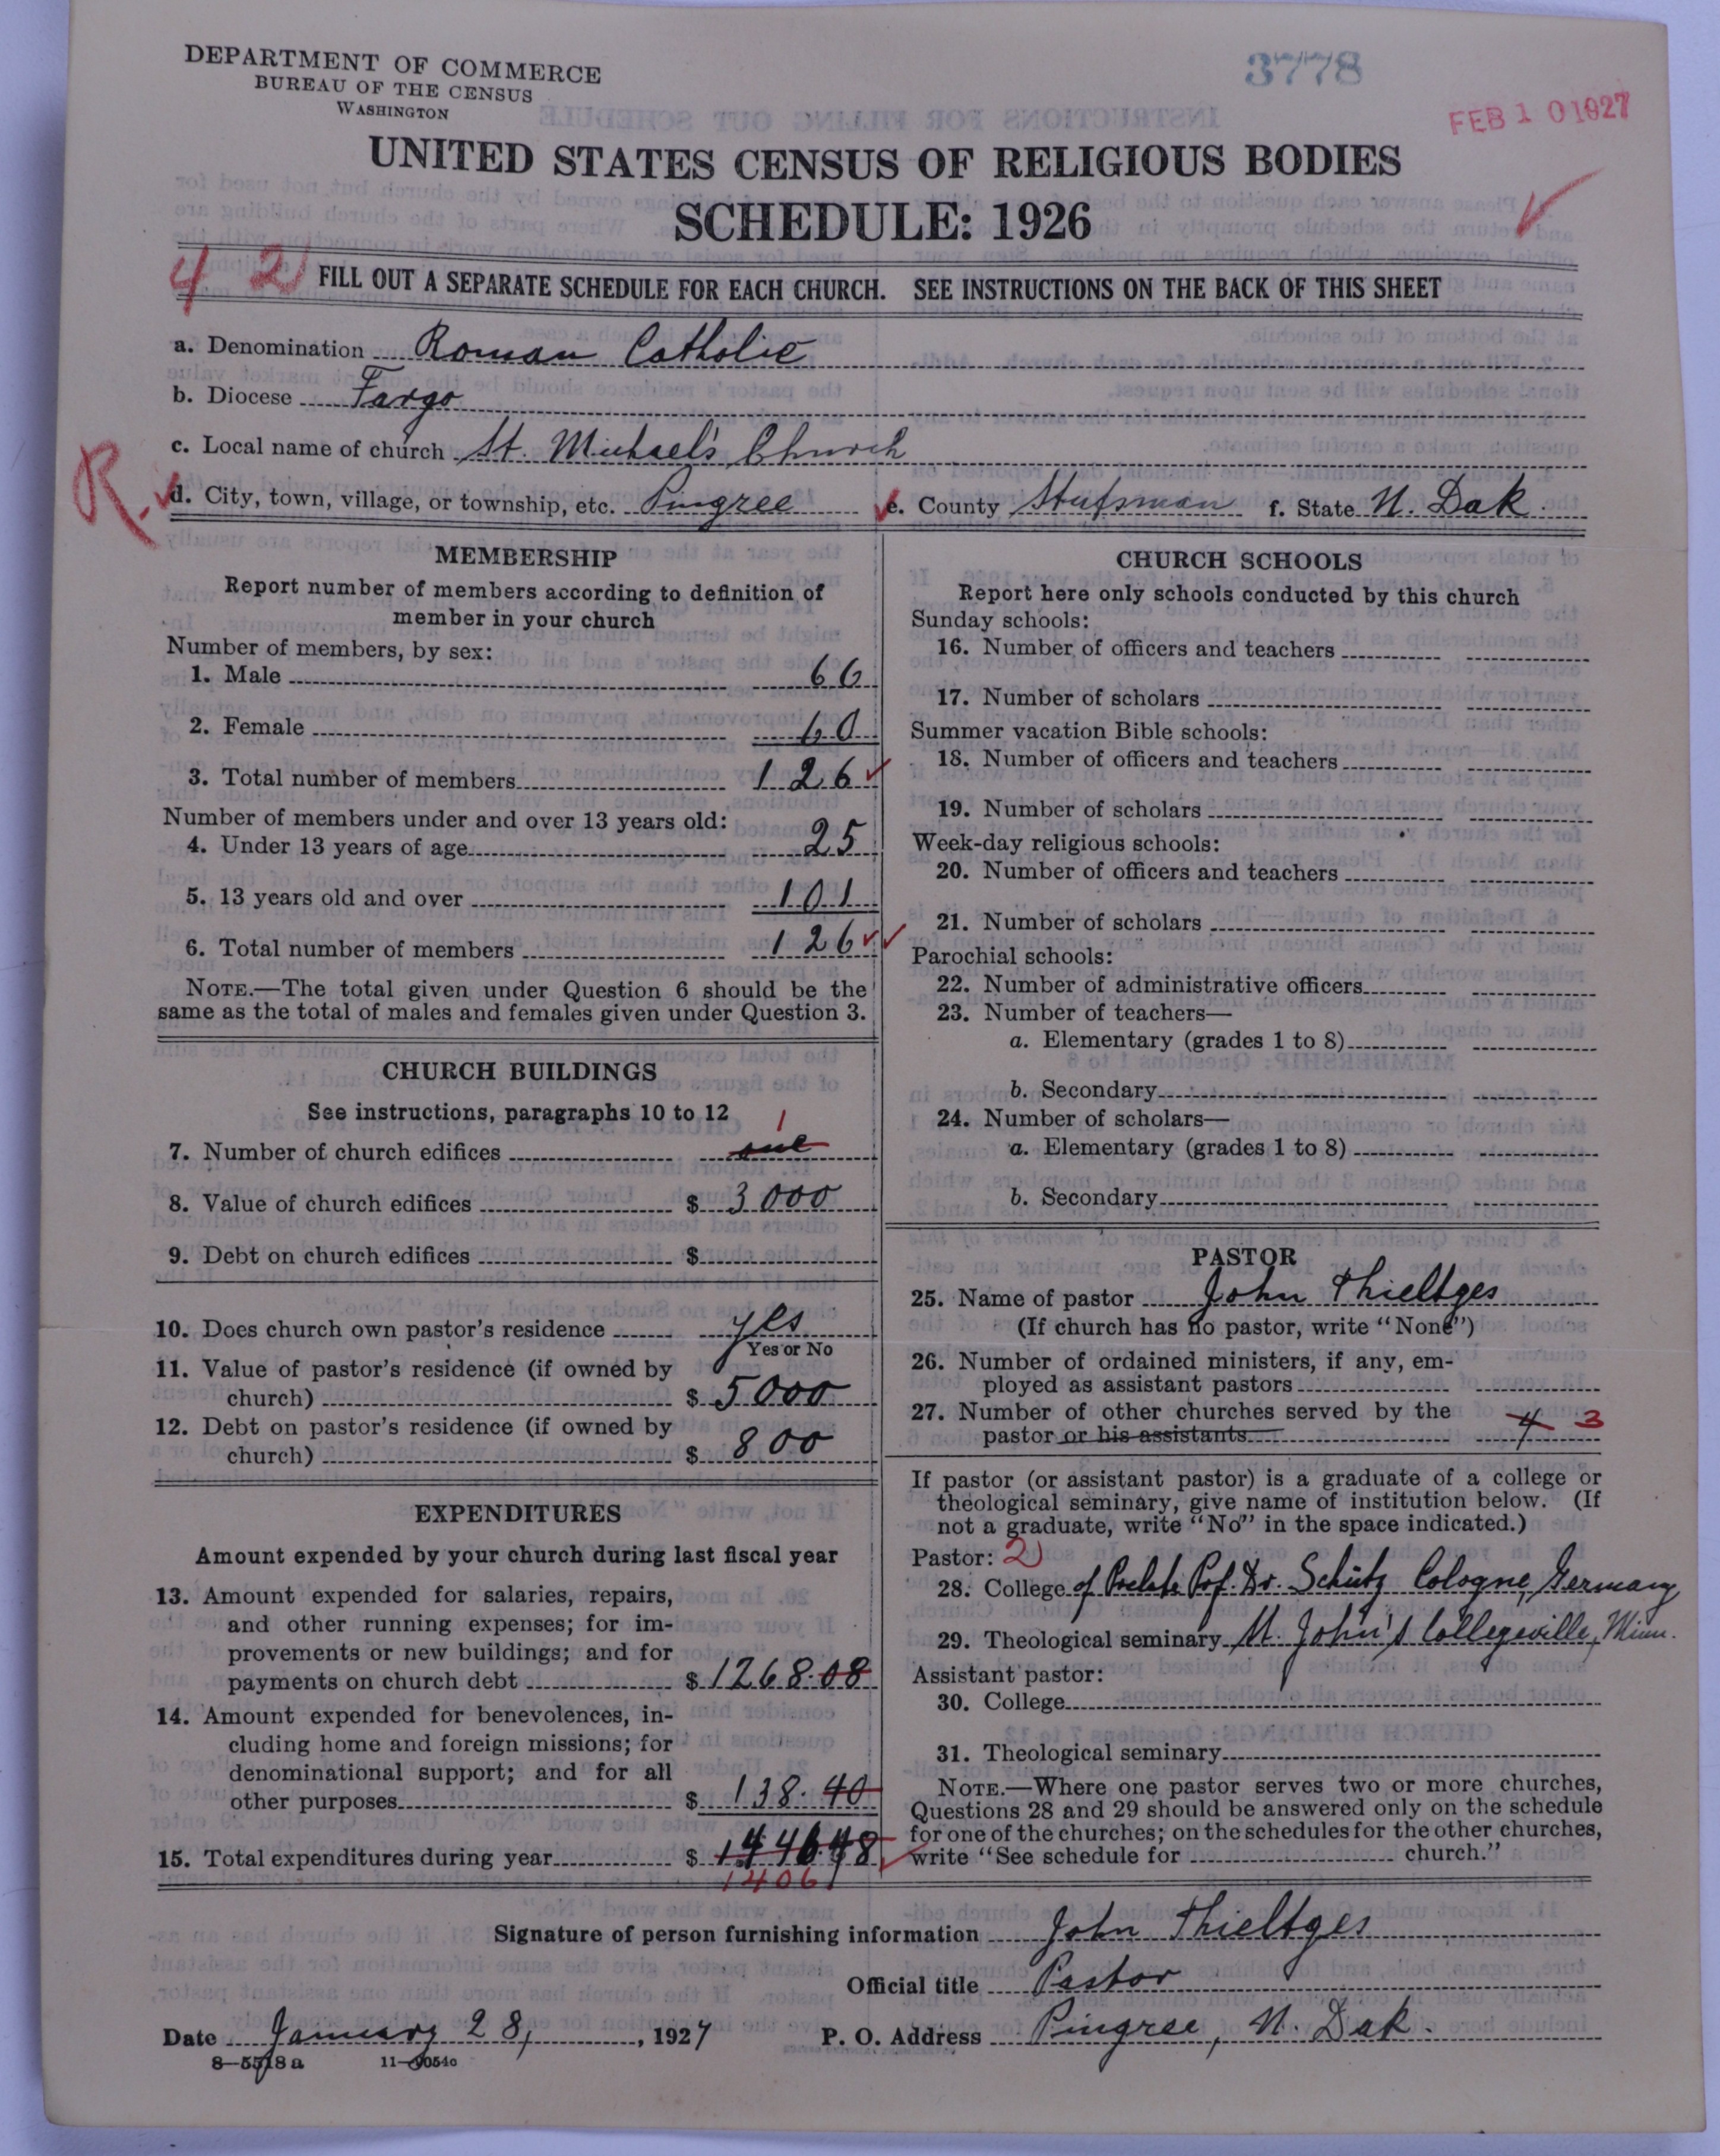 DEPARTMENT OF COMMERCE
BUREAU OF THE CENSUS
WASHINGTON
3778
FEB 10 1927
UNITED STATES CENSUS OF RELIGIOUS BODIES
SCHEDULE: 1926
4 2
FILL OUT A SEPARATE SCHEDULE FOR EACH CHURCH. SEE INSTRUCTIONS ON THE BACK OF THIS SHEET
a. Denomination Roman Catholic
b. Diocese Fargo
c. Local name of church St. Michael's Church
R.
d. City, town, village, or township, etc. Pingree e. County Stutsman f. State N. Dak.
MEMBERSHIP
Report number of members according to definition of
member in your church
Number of members, by sex:
1. Male 66
2. Female 60
3. Total number of members 126
Number of members under and over 13 years old:
4. Under 13 years of age 25
5. 13 years old and over 101
6. Total number of members 126
NOTE.—The total given under Question 6 should be the
same as the total of males and females given under Question 3.
CHURCH BUILDINGS
See instructions, paragraphs 10 to 12
7. Number of church edifices one 1
8. Value of church edifices $ 3000
9. Debt on church edifices $
10. Does church own pastor's residence yes
Yes or No
11. Value of pastor's residence (if owned by
church) $ 5000
12. Debt on pastor's residence (if owned by
church) $ 800
EXPENDITURES
Amount expended by your church during last fiscal year
13. Amount expended for salaries, repairs,
and other running expenses; for im-
provements or new buildings; and for
payments on church debt $ 1268.08
14. Amount expended for benevolences, in-
cluding home and foreign missions; for
denominational support; and for all
other purposes $ 138.40
15. Total expenditures during year $
1406
CHURCH SCHOOLS
Report here only schools conducted by this church
Sunday schools:
16. Number of officers and teachers
17. Number of scholars
Summer vacation Bible schools:
18. Number of officers and teachers
19. Number of scholars
Week-day religious schools:
20. Number of officers and teachers
21. Number of scholars
Parochial schools:
22. Number of administrative officers
23. Number of teachers—
a. Elementary (grades 1 to 8)
b. Secondary
24. Number of scholars—
a. Elementary (grades 1 to 8)
b. Secondary
PASTOR
25. Name of pastor John Thieltges
(If church has no pastor, write "None")
26. Number of ordained ministers, if any, em-
ployed as assistant pastors
27. Number of other churches served by the
pastor or his assistants 4 3
If pastor (or assistant pastor) is a graduate of a college or
theological seminary, give name of institution below. (If
not a graduate, write "No" in the space indicated.)
Pastor: 2
28. College of Prelate Prof. Dr. Schütz Cologne, Germany
29. Theological seminary St. John's Collegeville, Minn.
Assistant pastor:
30. College
31. Theological seminary
NOTE.—Where one pastor serves two or more churches,
Questions 28 and 29 should be answered only on the schedule
for one of the churches; on the schedules for the other churches,
write "See schedule for church."
Signature of person furnishing information John Thieltges
Official title Pastor
Date January 28, 1927 P. O. Address Pingree, N. Dak.
8—5518a 11—9054c